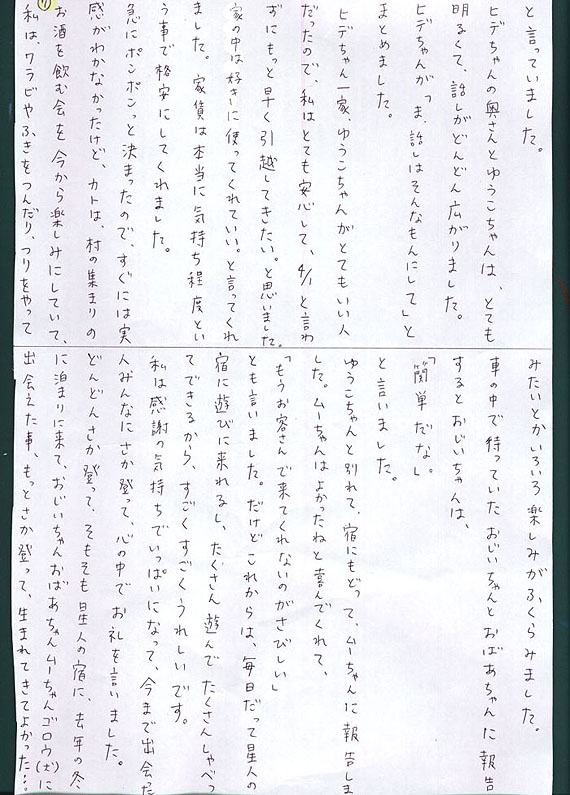 と言っていました。
ヒデちゃんの奥さんとゆうこちゃんは、とても
明るくて、話しがどんどん広がりました。
ヒデちゃんが「ま、話しはそんなもんにして」と
まとめました。
ヒデちゃん一家、ゆうこちゃんがとてもいい人
だったので、私はとても安心して、4/1と言わ
ずにもっと早く引越してきたい。と思いました。
家の中は好きに使ってくれていい。と言ってくれ
ました。家賃は本当に気持ち程度とい
う事で格安にしてくれました。
急にポンポンっと決まったので、すぐには実
感がわかなかったけど、カトは、村の集まりの
お酒を飲む会を今から楽しみにしていて、
私は、ワラビやふきをつんだり、つりをやって
⑦
みたいとかいろいろ楽しみがふくらみました。
車の中で待っていたおじいちゃんとおばあちゃんに報告
するとおじいちゃんは、
「簡単だな」
と言いました。
ゆうこちゃんと別れて、宿にもどって、ムーちゃんに報告しま
した。ムーちゃんはよかったねと喜んでくれて、
「もうお客さんで来てくれないのがさびしい」
とも言いました。だけどこれからは、毎日だって星人の
宿に遊びに来れるし、たくさん遊んでたくさんしゃべっ
てできるから、すごくすごくうれしいです。
私は感謝の気持ちでいっぱいになって、今まで出会った
人みんなにさか登って、心の中でお礼を言いました。
どんどんさか登って、そもそも星人の宿に、去年の冬
に泊まりに来て、おじいちゃんおばあちゃんムーちゃんゴロウ(犬)に
出会えた事、もっとさか登って、生まれてきてよかった…